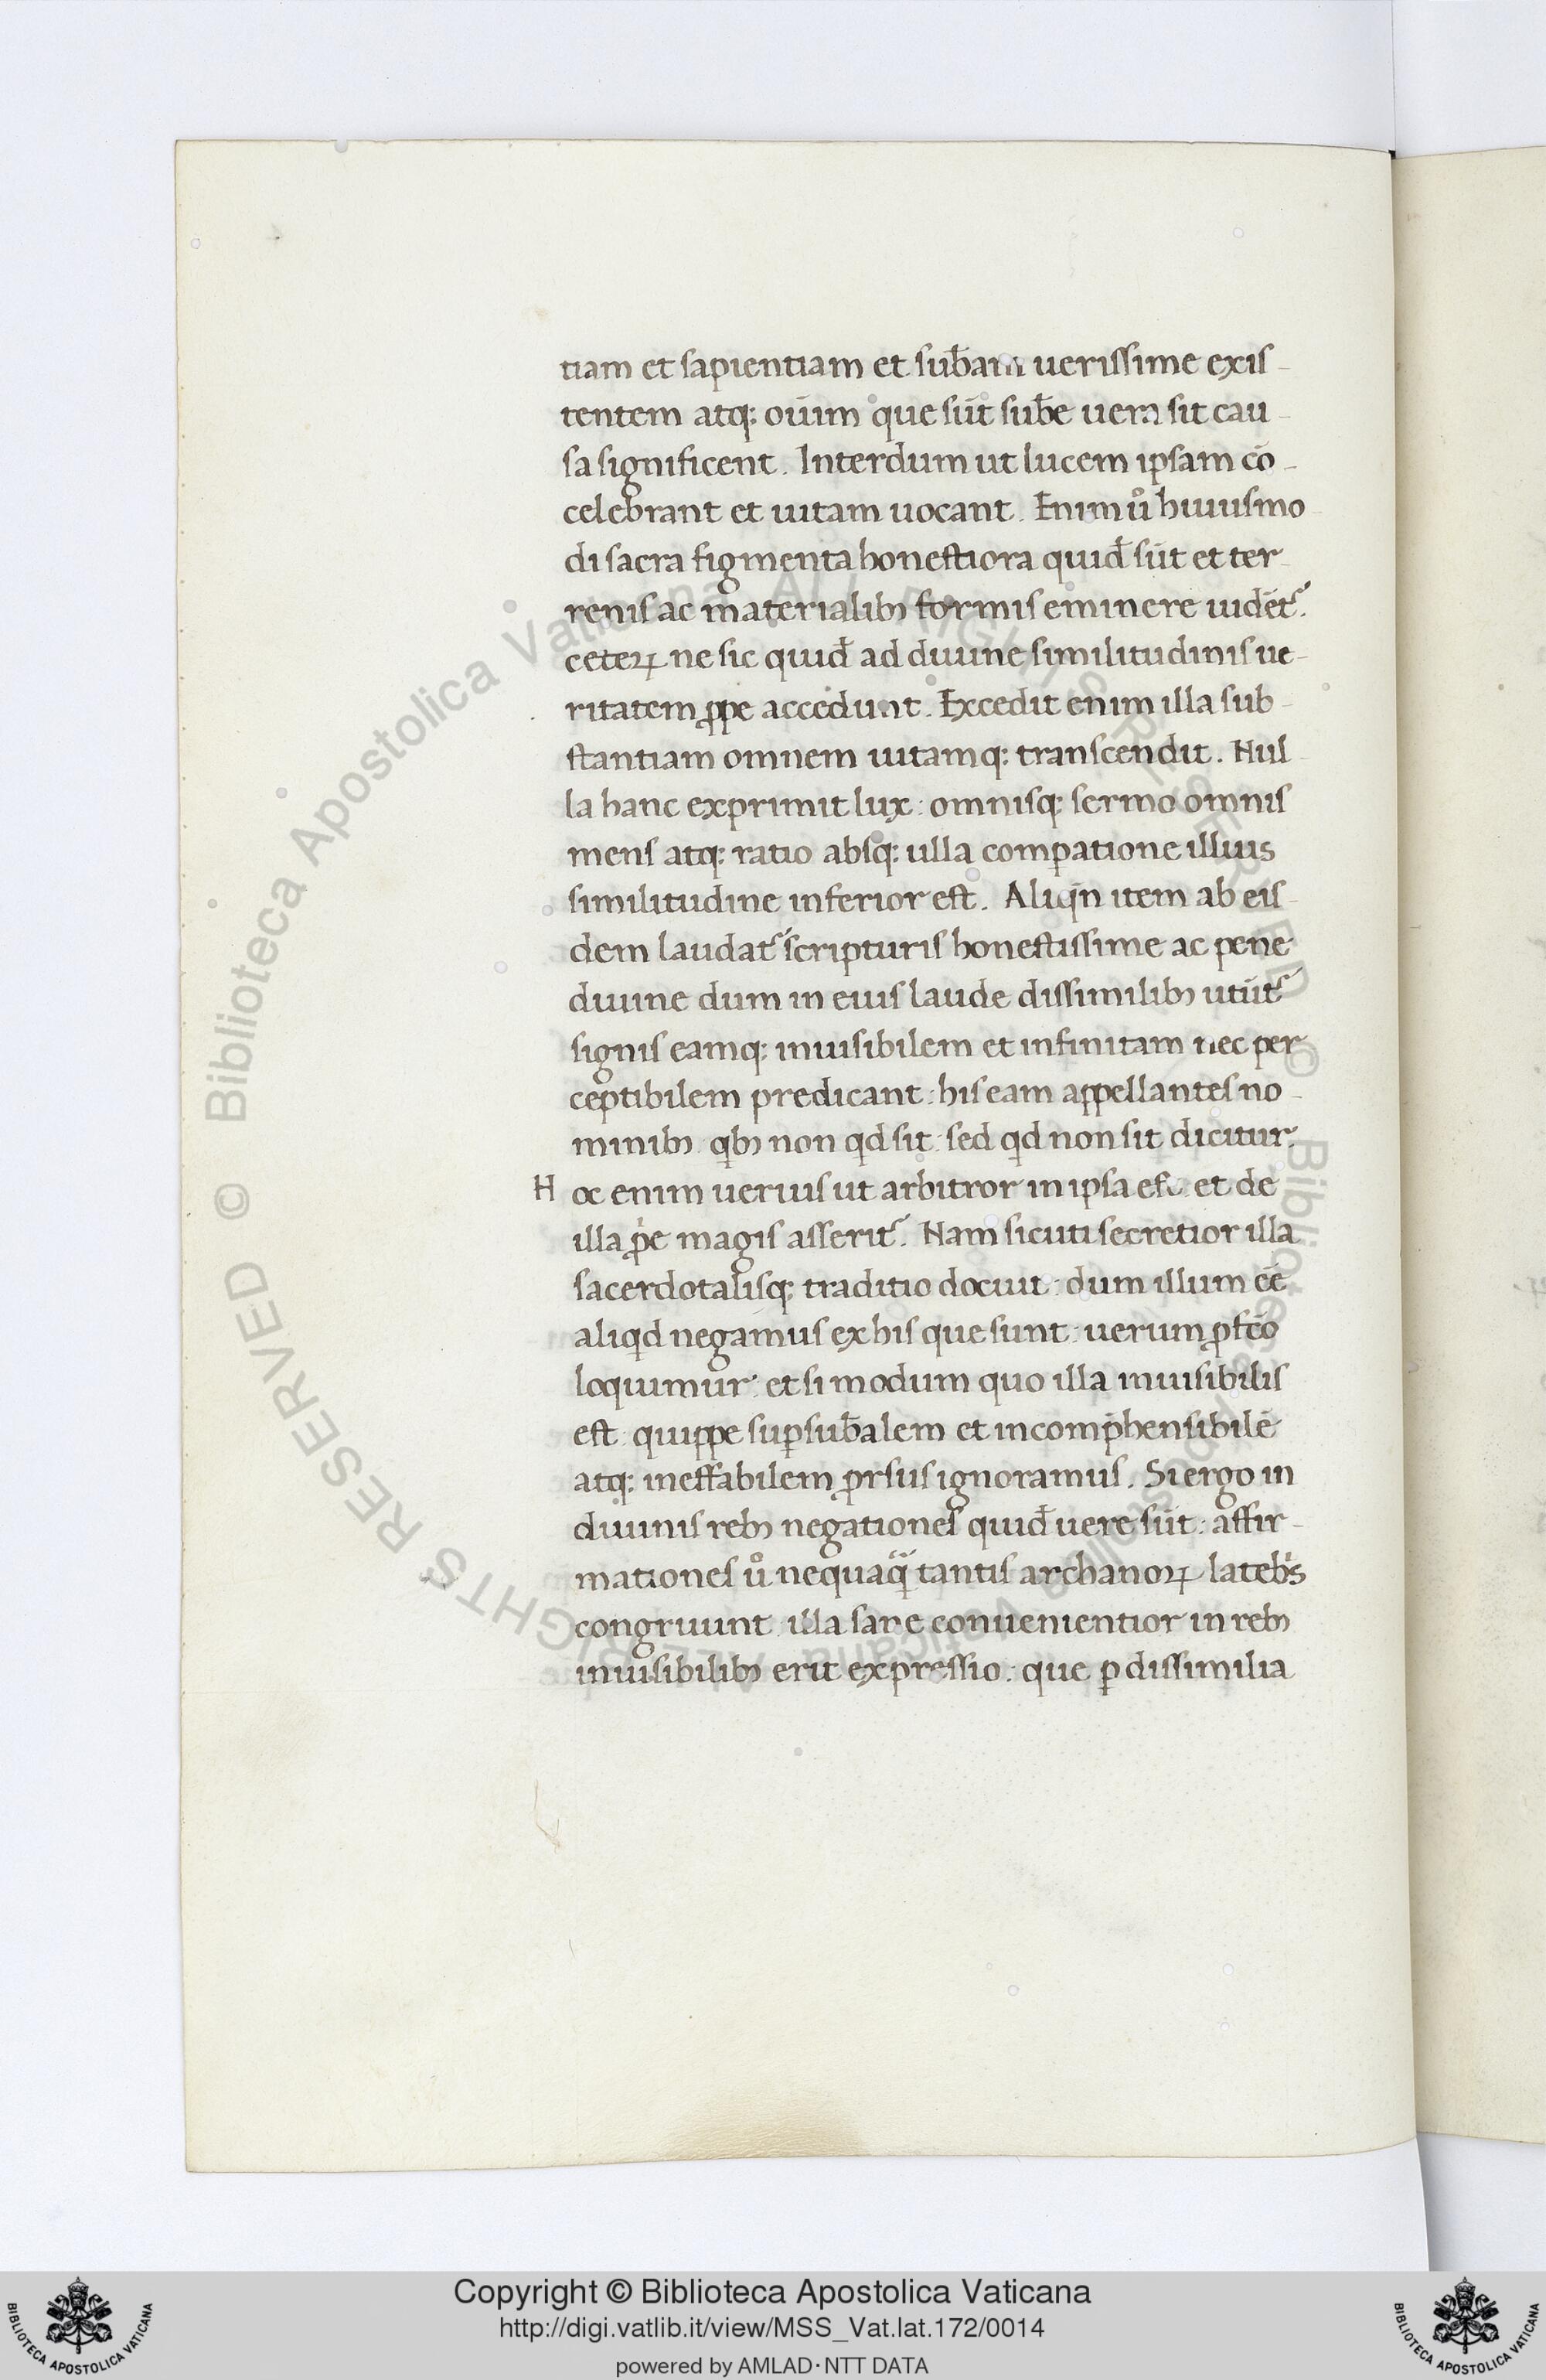 tiam et sapientiam et sub̄am uerissime exis-
tentem atq: oiūm que sūt sub̄e uera sit cau-
sa significent. Interdum ut lucem ipsam cō-
celebrant et uitam uocant. Enim ů huiusmo
di sacra figmenta honestiora quid̄ sūt et ter-
renis ac materialibꝫ formis eminere uidēt᷑.
ceteꝝ ne sic quid̄ ad diuine similitudinis ue-
ritatem ꝓpe accedunt. Excedit enim illa sub-
stantiam omnem uitamq: transcendit. Nul-
la hanc exprimit lux: omnisq: sermo omnis
mens atq: ratio absq: ulla comꝑatione illius
similitudine inferior est. Aliqn̄ item ab eis-
dem laudat᷑ scripturis honestissime ac pene
diuine dum in eius laude dissimilibꝫ utūt᷑
signis eamq: inuisibilem et infinitam nec per
ceptibilem predicant: his eam appellantes no-
minibꝫ qͥbꝫ non qͥd sit: sed qͥd non sit dicitur.
Hoc enim uerius ut arbitror in ipsa est: et de
illa ꝓpͥe magis asserit᷑. Nam sicuti secretior illa
sacerdotalisq: traditio docuit: dum illum eē
aliqͥd negamus ex his que sunt: uerum ꝓfcō
loquimur: et si modum quo illa inuisibilis
est: quippe suꝑsub̄alem et incomp̄hensibilē
atq: ineffabilem ꝓrsus ignoramus. Si ergo in
diuinis rebꝫ negationes quid̄ uere sūt: affir-
mationes ů nequaq̈ tantis archanoꝝ latebͥs
congruunt: illa sane conuenientior in rebꝫ
inuisibilibꝫ erit expressio: que ꝑ dissimilia
© Biblioteca Apostolica Vaticana ALL RIGHTS RESERVED © Biblioteca Apostolica Vaticana ALL RIGHTS RESERVED
Copyright © Biblioteca Apostolica Vaticana
http://digi.vatlib.it/view/MSS_Vat.lat.172/0014
powered by AMLAD·NTT DATA
BIBLIOTECA APOSTOLICA VATICANA
BIBLIOTECA APOSTOLICA VATICANA